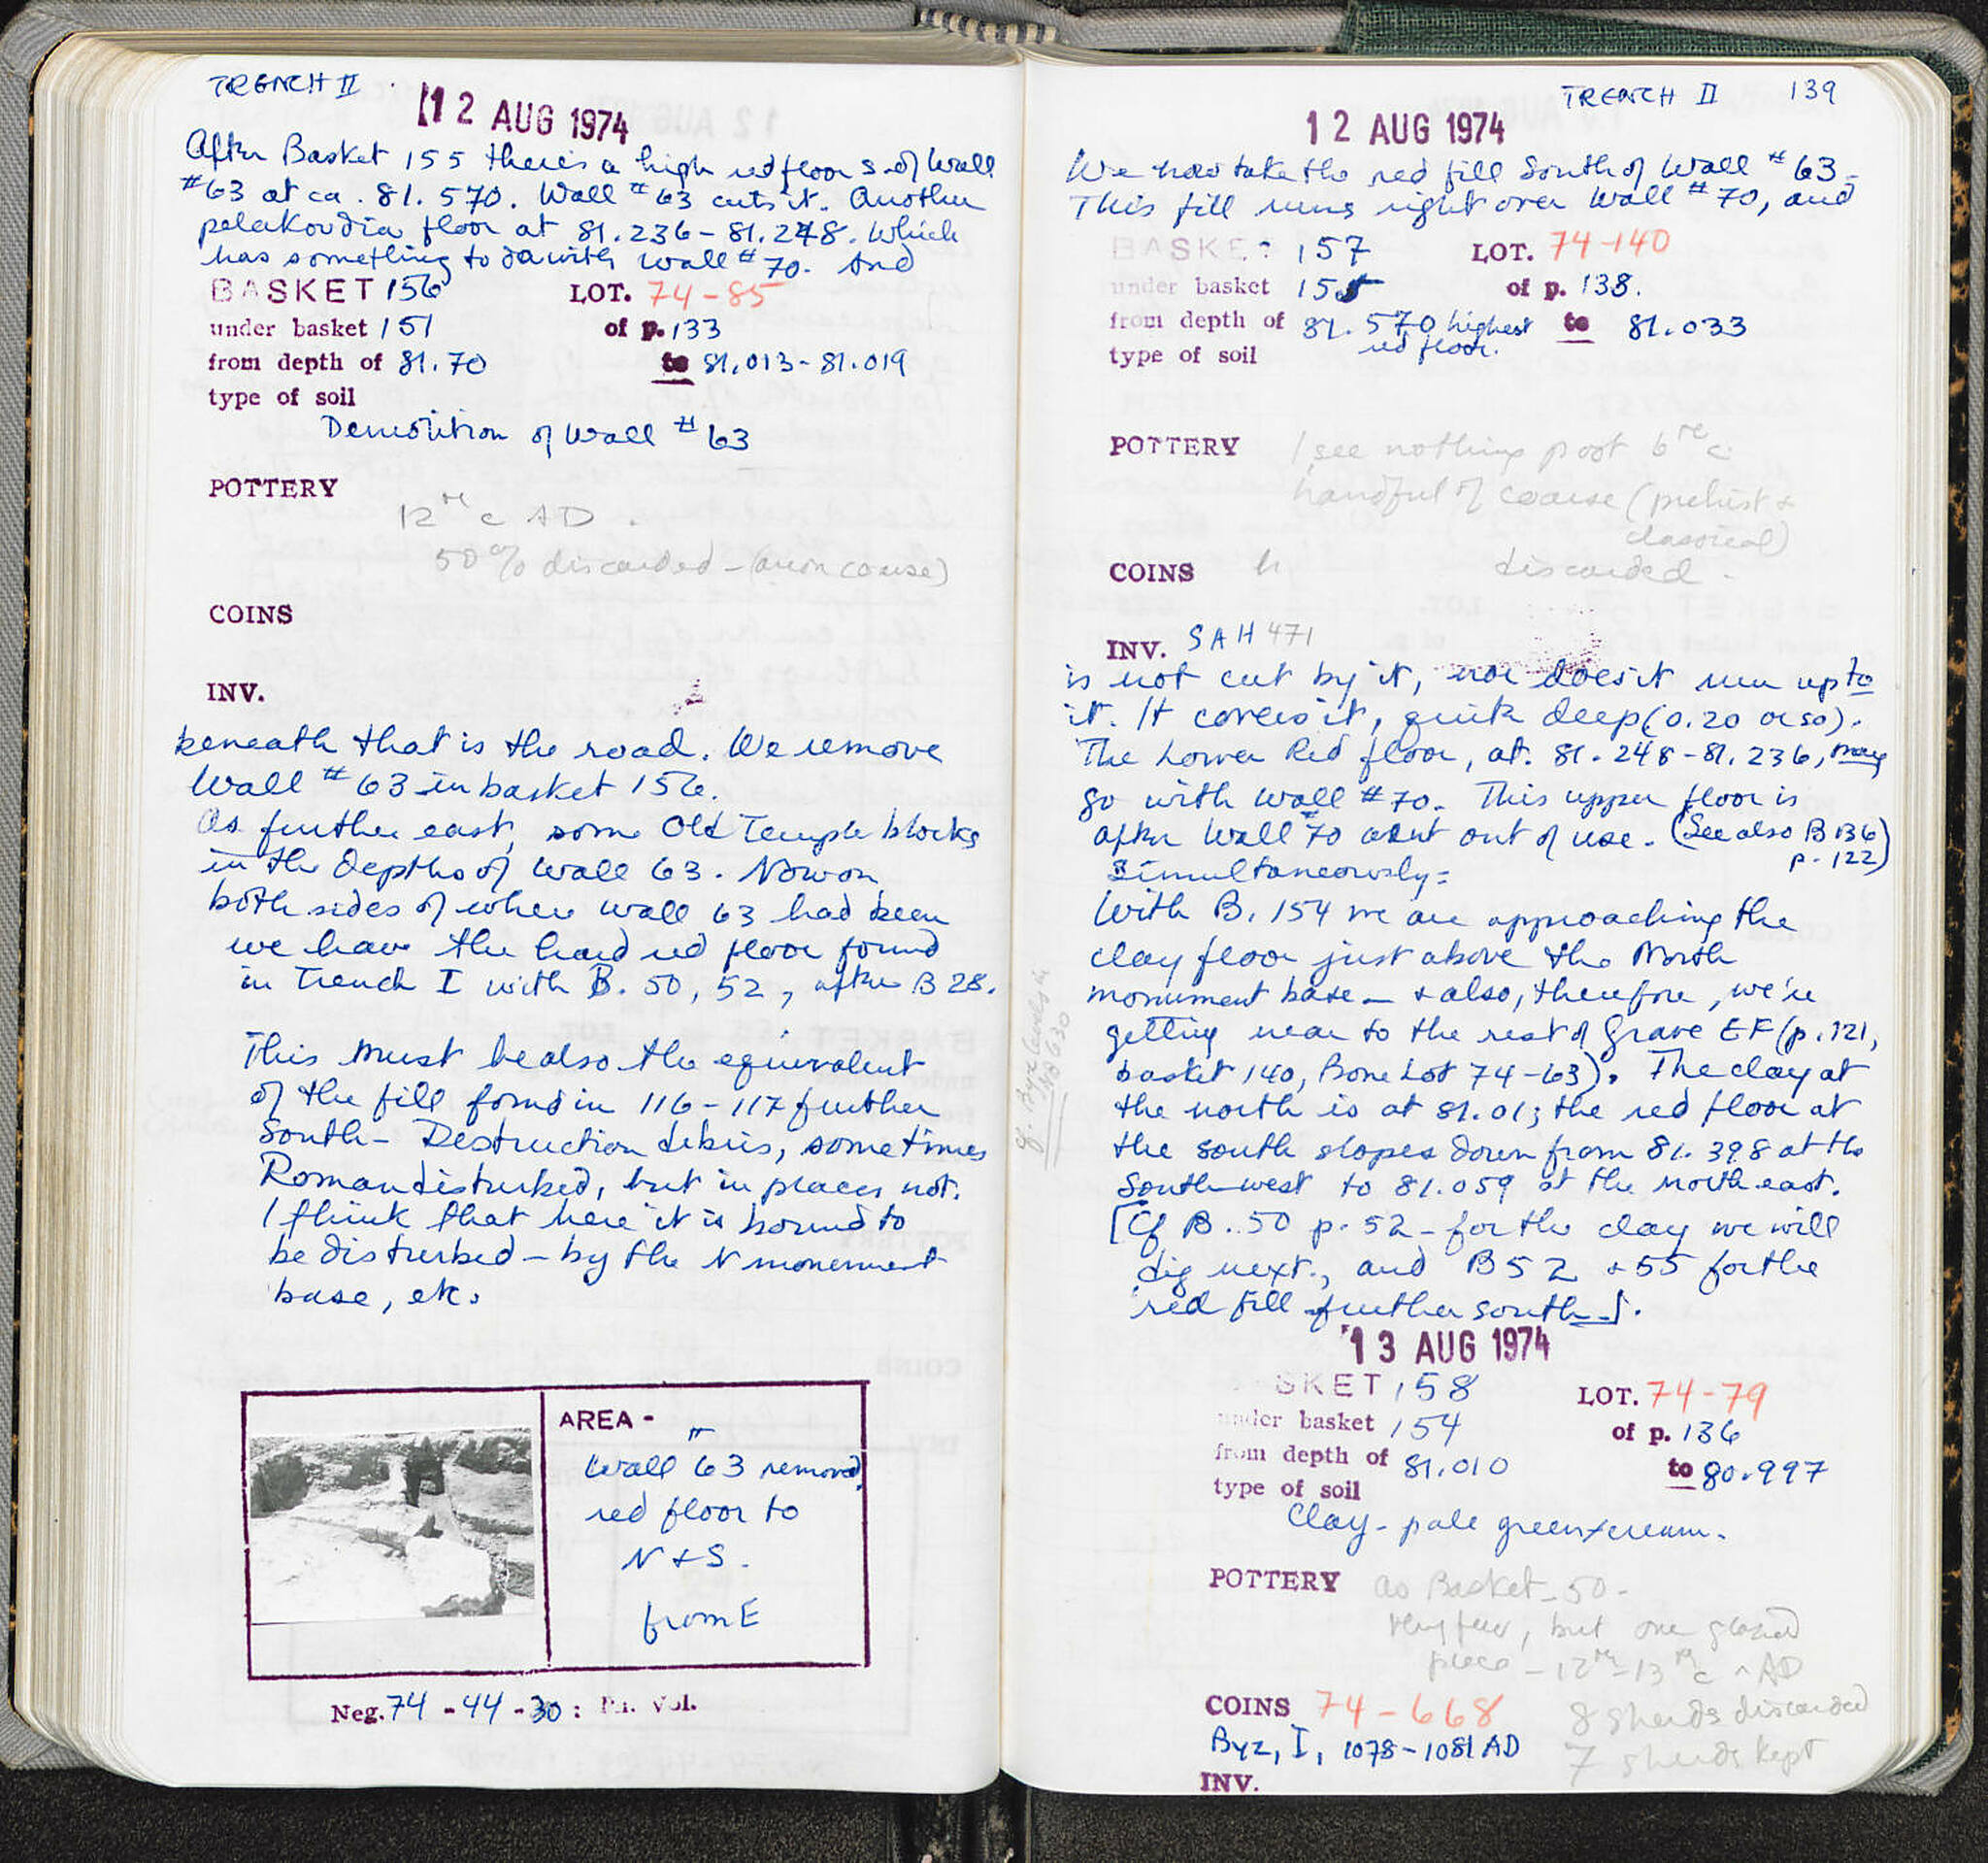 TRENCH II
12 AUG 1974
After Basket 155 there's a high red floor S. of Wall
#63 at ca. 81.570. Wall #63 cuts it. Another
polakoudia floor at 81.236-81.248. Which
has something to do with Wall #70. And
BASKET 156 LOT. 74-85
under basket 151 of p. 133
from depth of 81.70 to 81.013-81.019
type of soil
Demolition of Wall #63
POTTERY
12th c AD.
50% discarded - (mon coarse)
COINS
INV.
beneath that is the road. We remove
Wall #63 in basket 156.
As further east, some Old Temple blocks
in the depths of Wall 63. Now on
both sides of where wall 63 had been
we have the hard red floor found
in Trench I with B. 50, 52, after B 28.
This must be also the equivalent
of the fill found in 116-117 further
South - Destruction debris, sometimes
Roman disturbed, but in places not.
I think that here it is bound to
be disturbed - by the N monument
base, etc.
AREA -
Wall #63 removed,
red floor to
N + S.
from E
Neg. 74-44-30: Ph. Vol.
TRENCH II 139
12 AUG 1974
We now take the red fill South of Wall #63.
This fill runs right over Wall #70, and
BASKET 157 LOT. 74-140
under basket 155 of p. 138.
from depth of 81.570 highest to 81.033
red floor.
type of soil
POTTERY I see nothing post 6th c
handful of coarse (prehist +
classical)
COINS discarded.
INV. SAH 471
is not cut by it, nor does it run up to
it. It covers it, quite deep (0.20 or so).
The Lower Red floor, at 81.248-81.236, may
go with Wall #70. This upper floor is
after Wall #70 went out of use. (See also B 136
p. 122)
Simultaneously:
With B. 154 we are approaching the
clay floor just above the North
monument base - + also, therefore, we're
getting near to the rest of Grave EF (p. 121,
basket 140, Bone Lot 74-63). The clay at
the north is at 81.01; the red floor at
the south slopes down from 81.398 at the
Southwest to 81.059 at the northeast.
[Cf B. 50 p. 52 - for the clay we will
dig next, and B 52 + 55 for the
red fill further south].
13 AUG 1974
SKET 158 LOT. 74-79
under basket 154 of p. 136
from depth of 81.010 to 80.997
type of soil
Clay - pale green/cream.
POTTERY as Basket 50 -
Very few, but one glazed
piece - 12th-13th c AD
COINS 74-668 8 sherds discarded
Byz, I, 1078-1081 AD 7 sherds kept
INV.